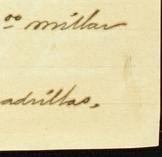 oo millar
adrillas.